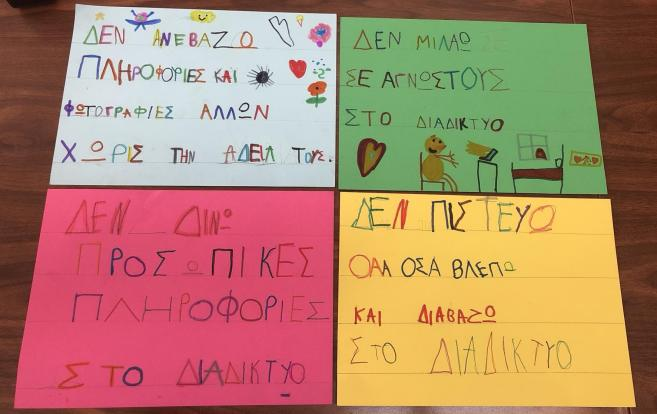 ΔΕΝ ΑΝΕΒΑΖΩ
ΠΛΗΡΟΦΟΡΙΕΣ ΚΑΙ
ΦΩΤΟΓΡΑΦΙΕΣ ΑΛΛΩΝ
ΧΩΡΙΣ ΤΗΝ ΑΔΕΙΑ ΤΟΥΣ.
ΔΕΝ ΜΙΛΑΩ
ΣΕ ΑΓΝΩΣΤΟΥΣ
ΣΤΟ ΔΙΑΔΙΚΤΥΟ
ΔΕΝ ΔΙΝΩ
ΠΡΟΣΩΠΙΚΕΣ
ΠΛΗΡΟΦΟΡΙΕΣ
ΣΤΟ ΔΙΑΔΙΚΤΥΟ
ΔΕΝ ΠΙΣΤΕΥΩ
ΟΛΑ ΟΣΑ ΒΛΕΠΩ
ΚΑΙ ΔΙΑΒΑΖΩ
ΣΤΟ ΔΙΑΔΙΚΤΥΟ